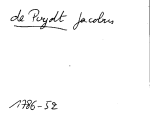 de Puydt Jacobus
1786-52